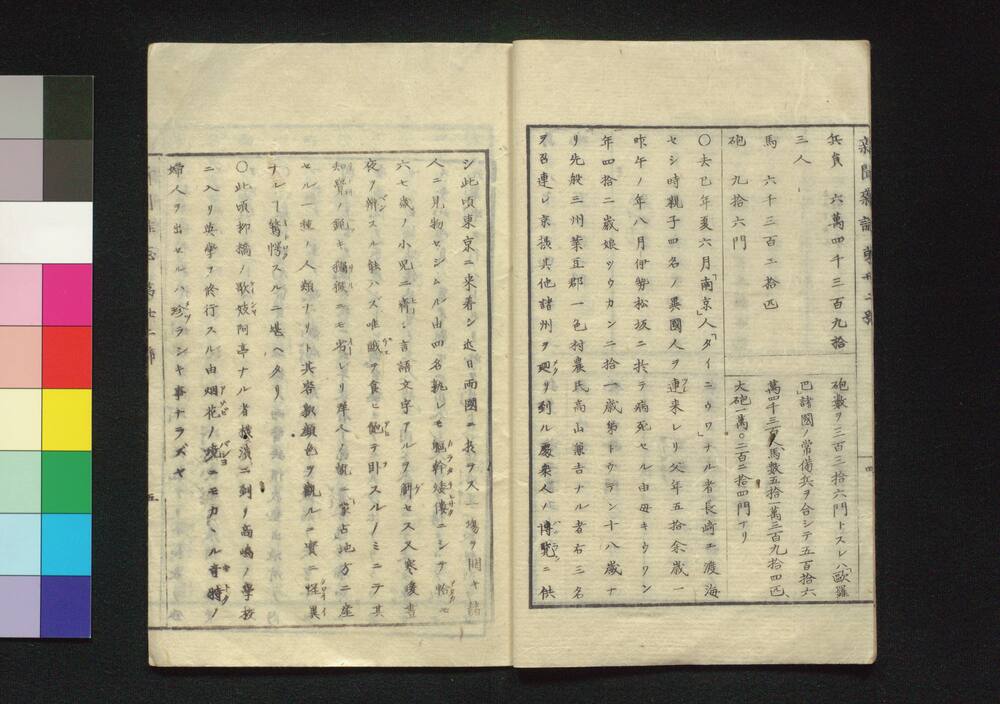 新聞雜誌第廿二號
四
兵員　六萬四千三百九拾
三人
馬　六千三百二拾匹
砲　九拾六門
砲數ヲ三百三拾六門トスレハ「歐羅
巴」諸國ノ常備兵ヲ合シテ五百拾六
萬四千三百人馬數五拾一萬三百九拾四匹、
大砲一萬〇二百二拾四門ナリ
〇去巳年夏六月「南京」人「タイニウワ」ナル者長崎エ渡海
セシ時親子四名ノ異國人ヲ連来レリ父年五拾余歳一
昨午ノ年八月伊勢松坂ニ於テ病死セル由母キウワン
年四拾二歳娘ツウカン二拾一歳弟トウテン十八歳ナ
リ先般三州葉豆郡一色村農氏高山兼吉ナル者右三名
ヲ召連レ京摂其他諸州ヲ廻リ到ル處衆人ノ博覧ニ供
シ此頃東京ニ来着シ近日両國ニ於ヲス一場ヲ開キ諸
人ニ見物セシムル由四名孰レモ軀幹矮僂ニシテ恰モ
六七歳ノ小児ニ齊シ言語文字アルヲ解セス又寒暖晝
夜ヲ辨スル能ハズ唯戯ヲ食ヒ飽テ卧スルノミニテ其
知覺ノ鈍キ獼猴ニモ劣レリ洋人ノ説ニ蒙古地方ニ産
セル一種ノ人類ナリト其容貌顔色ヲ觀ルニ實ニ怪異
ナレー驚愕スルニ堪ヘタリ
〇此頃柳橋ノ歌妓阿亭ナル者横濱ニ到リ高嶋ノ學校
ニ入リ英學ヲ修行スル由烟花ノ境ニモカヽル奇特ノ
婦人ヲ出セルハ珍ラシキ事ナラズヤ
五